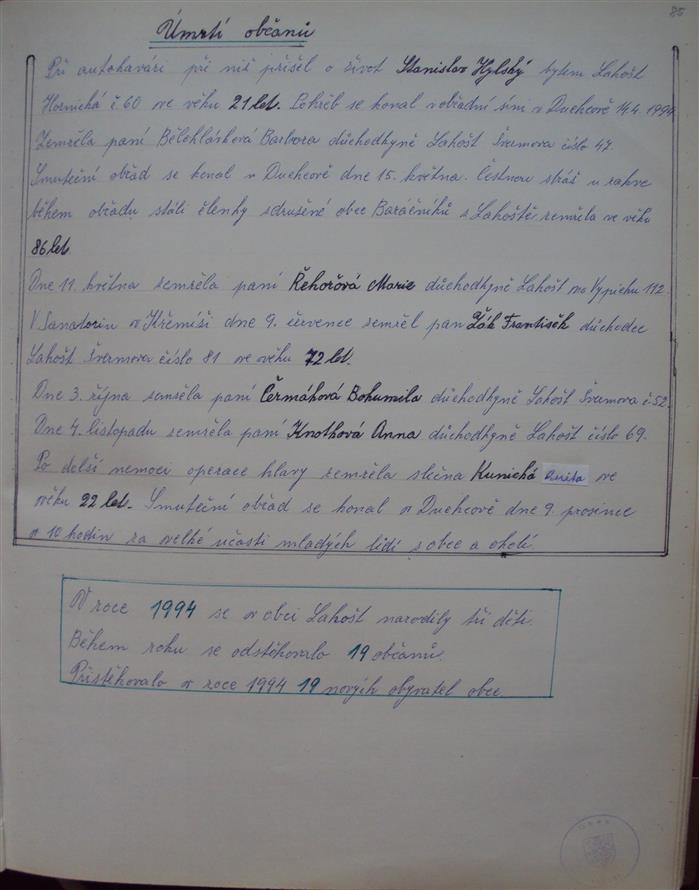 85
Úmrtí občanů
Při autohavári při niž přišel o život Stanislav Hylský bytem Lahošt
Hornická č. 60 ve věku 21 let. Pohřeb se konal v obřadní síni v Duchcově 14.4. 1994
Zemřela paní Bělohlávková Barbora důchodkyně Lahošt Švermova číslo 47.
Smuteční obřad se konal v Duchcově dne 15. května. Čestnou stráž u rakve
během obřadu stáli členky sdružené obce Baráčníků z Lahoště zemřela ve věku
86 let.
Dne 11. května zemřela paní Řehořová Marie důchodkyně Lahošt na Vypichu 112.
V Sanatoriu v Křemíži dne 9. července zemřel pan Žák František důchodce
Lahošt Švermova číslo 81 ve věku 72 let.
Dne 3. října zemřela paní Čermáková Bohumila důchodkyně Lahošt Švermova č 52.
Dne 4. listopadu zemřela paní Knothová Anna důchodkyně Lahošt číslo 69.
Po delší nemoci operace hlavy zemřela slečna Kunická ve
věku 22 let. Smuteční obřad se konal v Duchcově dne 9. prosince
v 10 hodin za velké učasti mladých lidí z obce a okolí.
V roce 1994 se v obci Lahošt narodily tři děti.
Během roku se odstěhovalo 19 občanů.
Přistěhovalo v roce 1994 19 nových obyvatel obce.